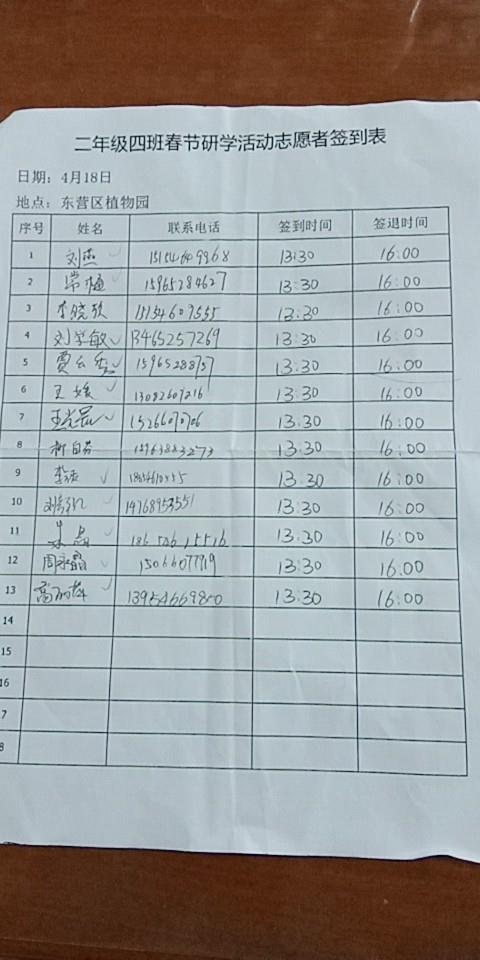 二年级四班春节研学活动志愿者签到表
日期：4月18日
地点：东营区植物园
序号 姓名 联系电话 签到时间 签退时间
1 刘杰 13:30 16:00
2 常植 15965284627 13:30 16:00
3 李晓 13:30 16:00
4 刘学敏 13465257269 13:30 16:00
5 贾 15965288757 13:30 16:00
6 王媛 13082607216 13:30 16:00
7 王 15266070706 13:30 16:00
8 13:30 16:00
9 13:30 16:00
10 13:30 16:00
11 18654615516 13:30 16:00
12 周永 15066077919 13:30 16:00
13 13954669800 13:30 16:00
14
15
16
7
8